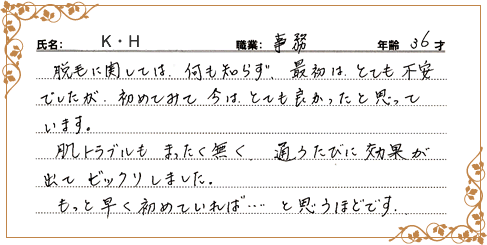 氏名: K・H 職業: 事務 年齢 36才
脱毛に関しては、何も知らず、最初は、とても不安
でしたが、初めてみて、今は、とても良かったと思って
います。
肌トラブルも まったく無く、通うたびに効果が
出て ビックリしました。
もっと早く初めていれば…と思うほどです。